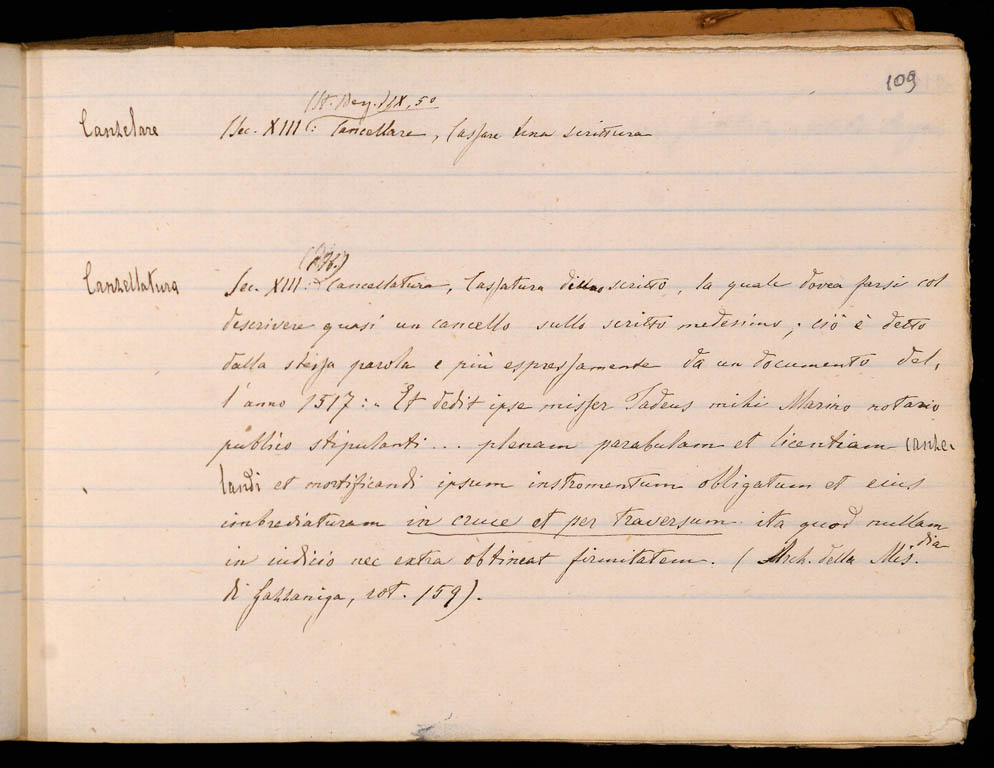 109
(St. Berg. IX, 50
Canzelare Sec. XIII: Cancellare, Cassare una scrittura
Canzellatura Sec. XIII: Cancellatura, Cassatura dello scritto, la quale dovea farsi col
descrivere quasi un cancello sullo scritto medesimo; ciò è detto
dalla stessa parola e più espressamente da un documento del,
l'anno 1517:- Et dedit ipse misser Tadeus mihi Marino notario
publico stipulanti... plenam parabulam et licentiam canze-
landi et mortificandi ipsum instromentum obligatum et eius
imbrediaturam in cruce et per traversum ita quod nullam
in iudicio nec extra obtineat firmitatem. (Arch. della Mis.dia
di Gazzaniga, rot. 159).